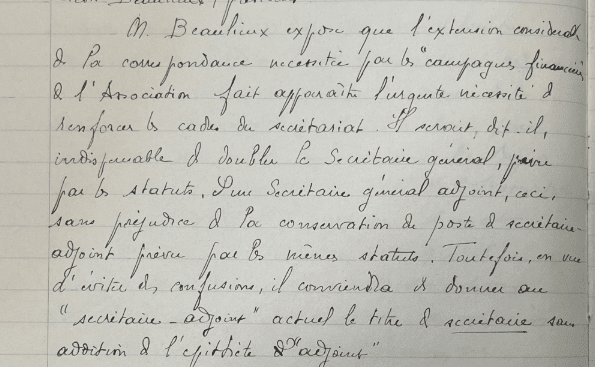 M. Beaulieux expose que l'extension considérable
de la correspondance necessitée par les "campagnes financières
de l'Association fait apparaître l'urgente nécessité de
renforcer les cadres du secrétariat. Il serait, dit-il,
indispensable de doubler le Secrétaire général, prévu
par les statuts, d'un Secrétaire général adjoint, ceci,
sans préjudice de la conservation du poste de secrétaire-
adjoint prévu par les mêmes statuts. Toutefois, en vue
d'éviter des confusions, il conviendra de donner au
"secrétaire-adjoint" actuel le titre de secrétaire sans
addition de l'épithète d'"adjoint"